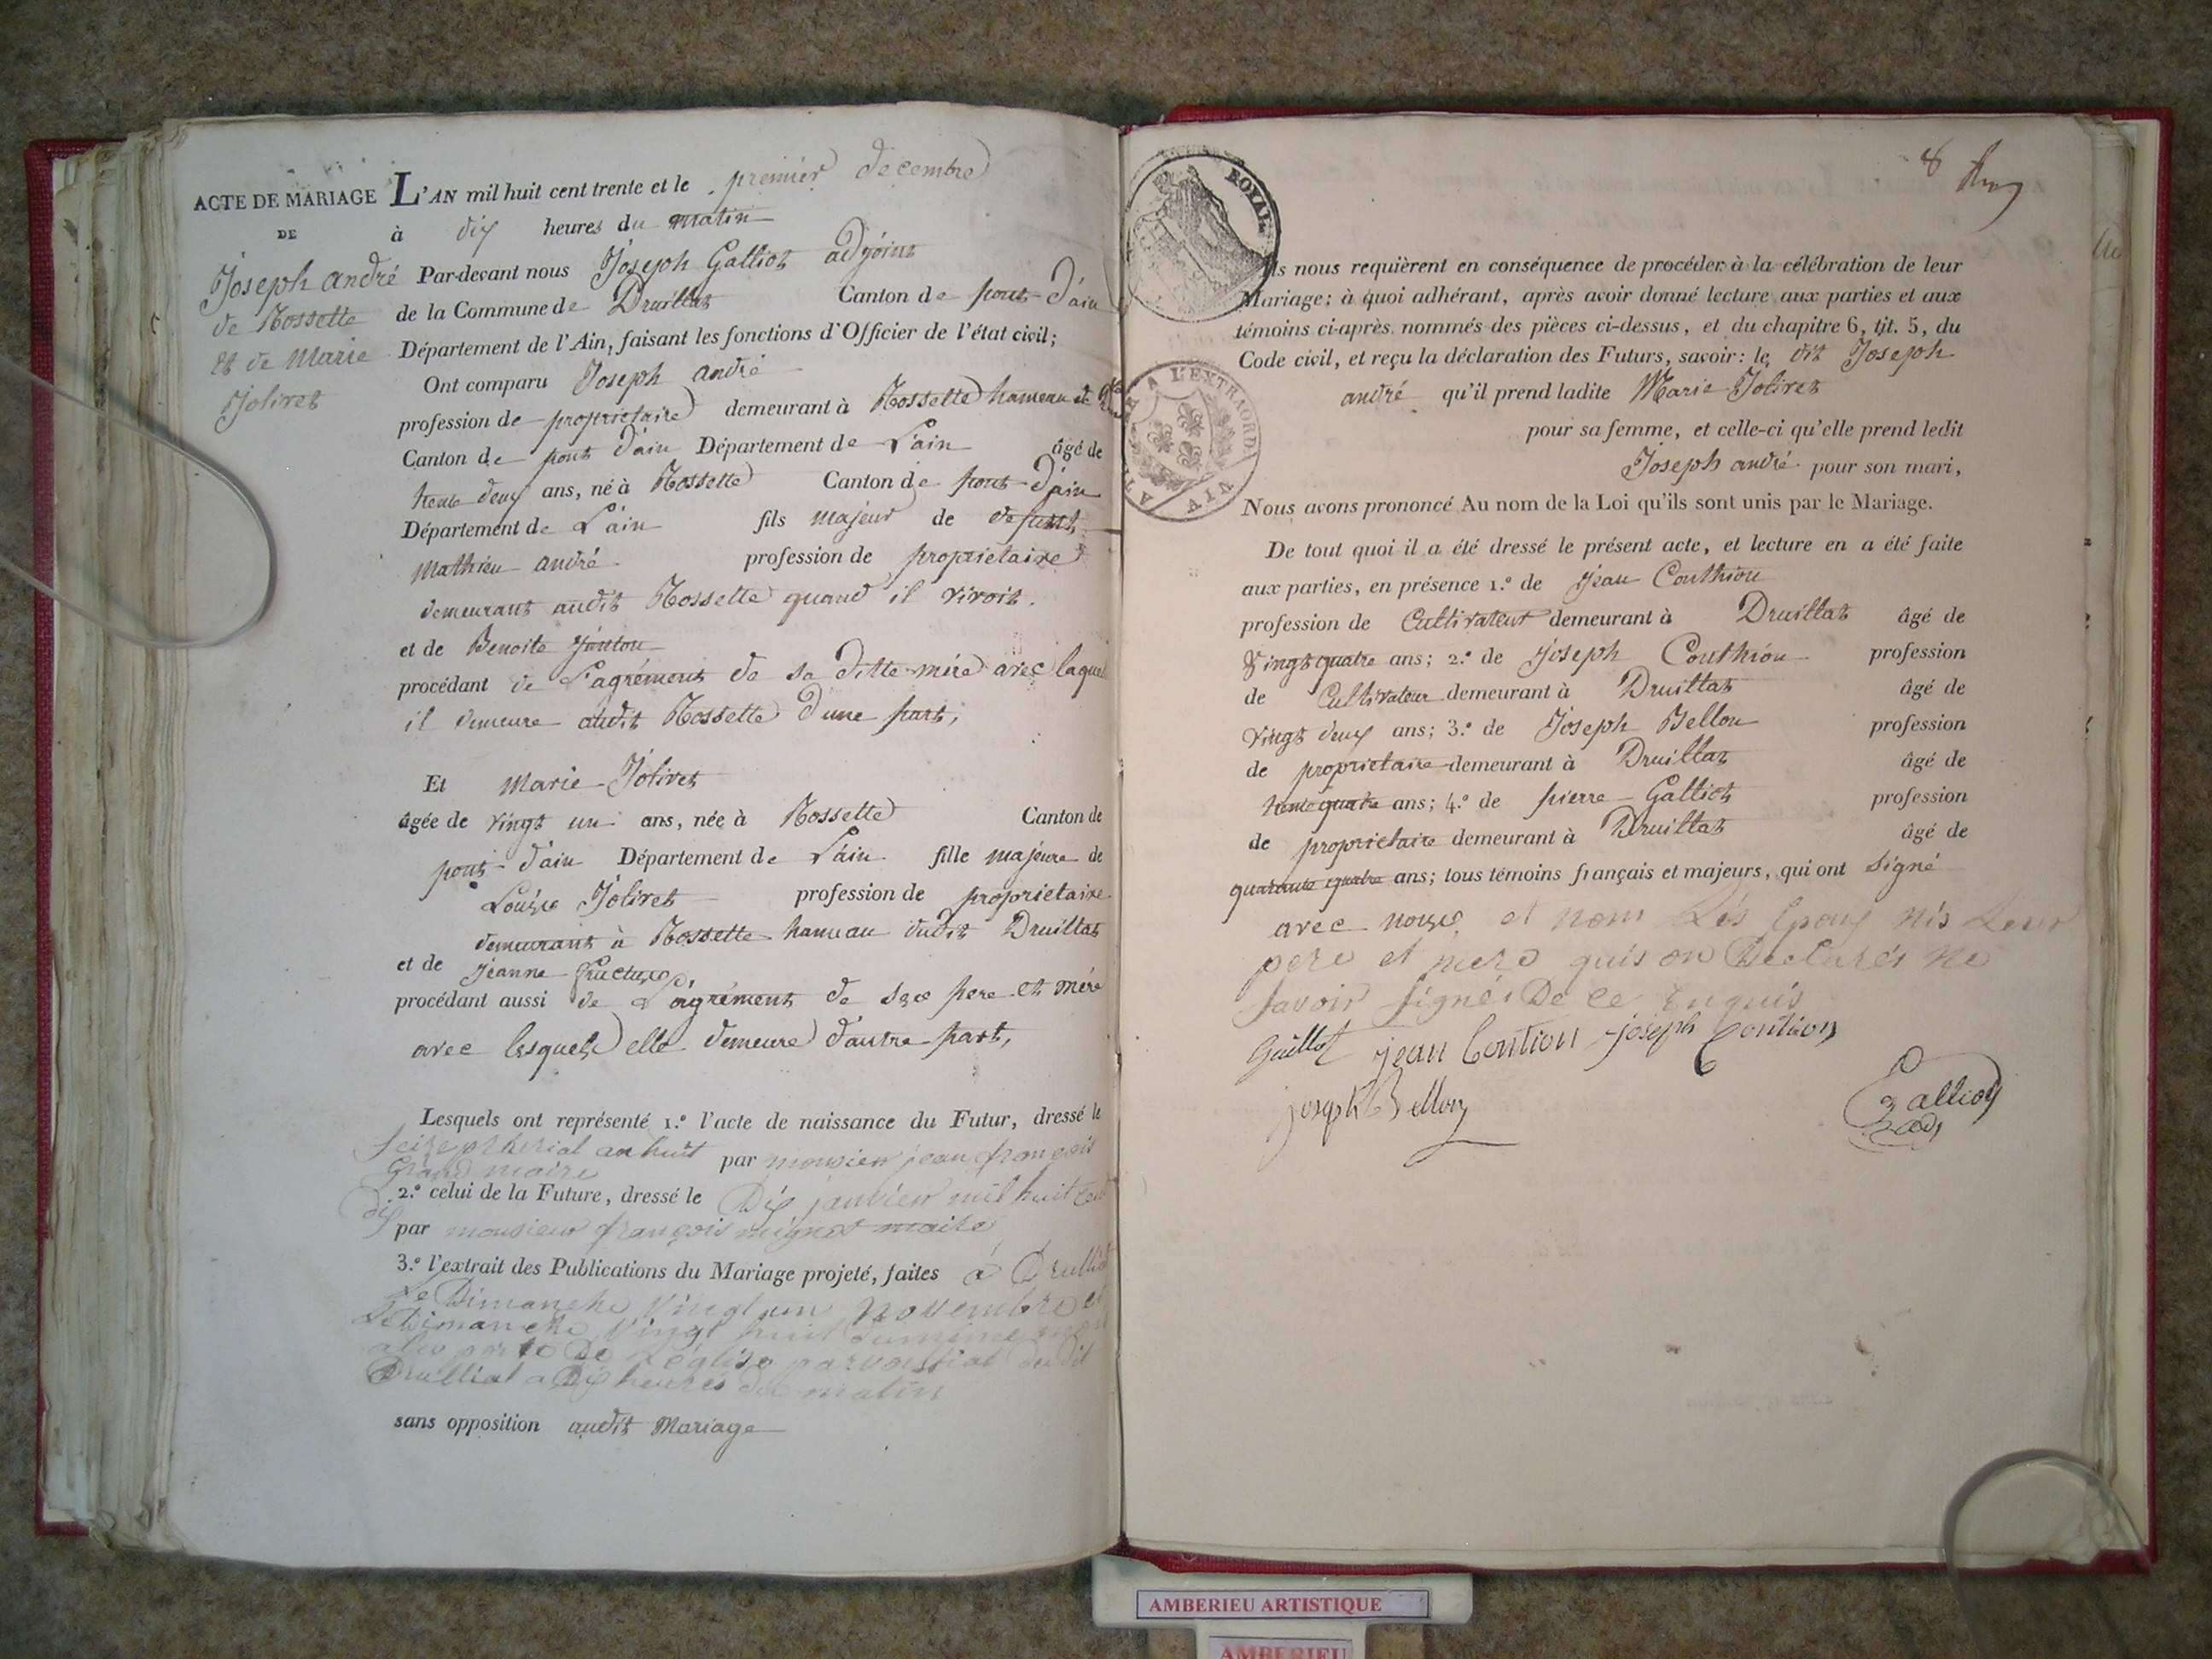 ACTE DE MARIAGE
DE
Joseph andré
de Rossette
et de Marie
Jolivet
L'AN mil huit cent trente et le premier decembre
à dix heures du matin
Par-devant nous Joseph Galliot adjoint
de la Commune de Druillat Canton de pont-d'ain
Département de l'Ain, faisant les fonctions d'Officier de l'état civil;
Ont comparu Joseph andré
profession de propriétaire demeurant à Rossette hameau de
Canton de pont d'ain Département de L'ain âgé de
trente deux ans, né à Rossette Canton de pont-d'ain
Département de L'ain fils majeur de defunt
mathieu andré profession de propriétaire
demeurant audit Rossette quand il vivoit.
et de Benoite
procédant de L'agrément de sa ditte mére avec laquel
il demeure audit Rossette d'une part;
Et Marie Jolivet
âgée de vingt un ans, née à Rossette Canton de
pont-d'ain Département de L'ain fille majeure de
Jolivet profession de propriétaire
demeurant à Rossette hameau dudit Druillat
et de Jeanne
procédant aussi de L'agrément de ses pere et mére
avec lesquels elle demeure d'autre part,
Lesquels ont représenté 1.º l'acte de naissance du Futur, dressé le
seize an huit par monsieur jean françois
Grand maire
2.º celui de la Future, dressé le Dix janvier mil huit cent
dix
par monsieur françois maire
3.º l'extrait des Publications du Mariage projeté, faites à Drulliat
Le Dimanche vingt un novembre et
Le Dimanche vingt huit du meme
a la porte De L'église du dit
Drulliat a Dix heures du matin
sans opposition audit Mariage
8
ROYAL
A L'EXTRAORD
Ils nous requièrent en conséquence de procéder à la célébration de leur
Mariage; à quoi adhérant, après avoir donné lecture aux parties et aux
témoins ci-après nommés des pièces ci-dessus, et du chapitre 6, tit. 5, du
Code civil, et reçu la déclaration des Futurs, savoir: le dit Joseph
andré qu'il prend ladite Marie Jolivet
pour sa femme, et celle-ci qu'elle prend ledit
Joseph andré pour son mari,
Nous avons prononcé Au nom de la Loi qu'ils sont unis par le Mariage.
De tout quoi il a été dressé le présent acte, et lecture en a été faite
aux parties, en présence 1.º de Jean Couthiou
profession de Cultivateur demeurant à Druillat âgé de
Vingt quatre ans; 2.º de Joseph Couthiou profession
de Cultivateur demeurant à Druillat âgé de
vingt deux ans; 3.º de Joseph Bellou profession
de propriétaire demeurant à Druillat âgé de
trente quatre ans; 4.º de pierre Galliot profession
de propriétaire demeurant à Druillat âgé de
quarante quatre ans; tous témoins français et majeurs, qui ont signé
avec nous et nom Les Epoux nis Leur
pere et mere quis on Declarés ne
savoir signés De ce
Guillot jean Coution joseph Coution
joseph Bellon
Galliot
adj
AMBERIEU ARTISTIQUE
AMBERIEU